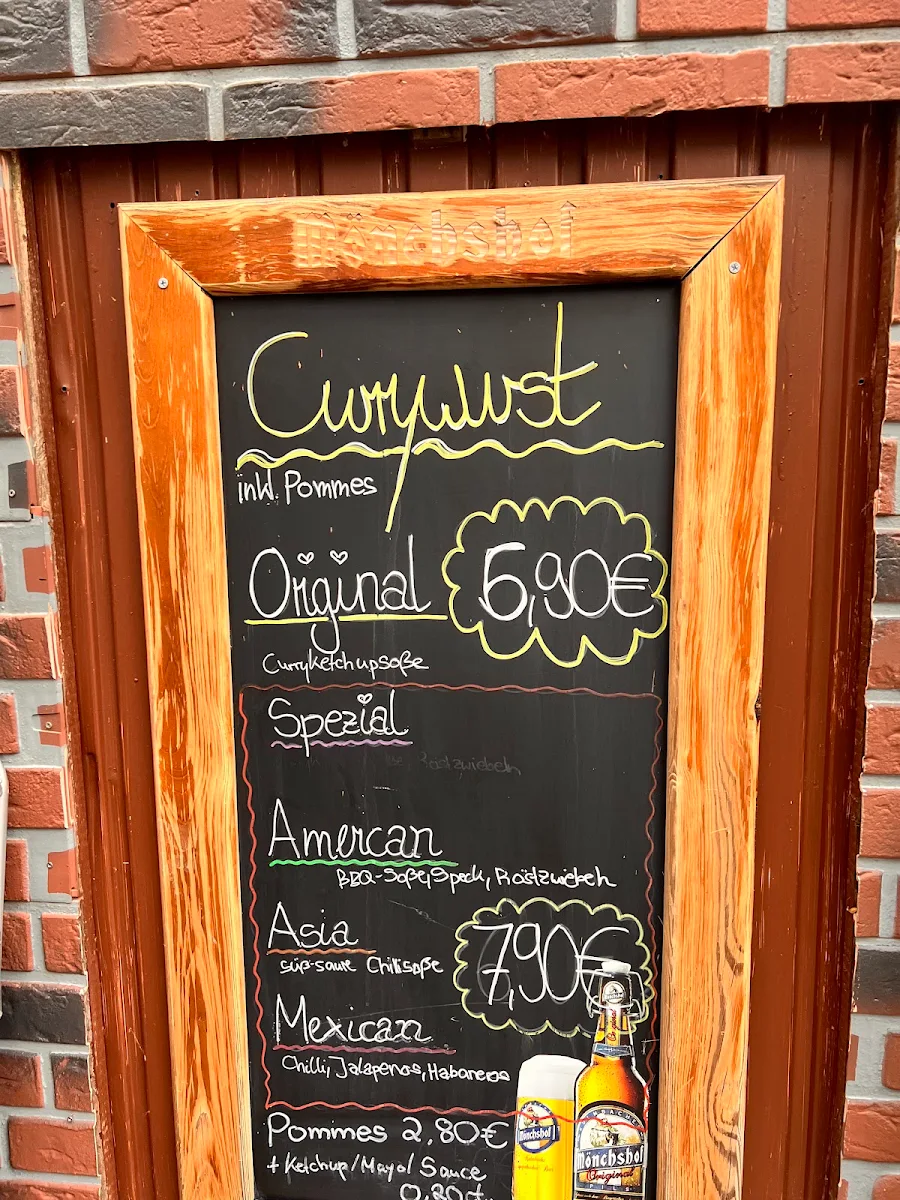 Mönchshof
Currywurst
inkl. Pommes
Original 6,90€
Curryketchupsoße
Spezial
Röstzwiebeln
Amercan
BBQ-Soße, Speck, Röstzwiebeln
Asia
süß-saure Chillisoße
7,90€
Mexican
Chilli, Jalapenos, Habaneros
Pommes 2,80€
+ Ketchup/Mayo/Sauce
0,80€
Mönchshof
Mönchshof
Mönchshof
Original
PILS